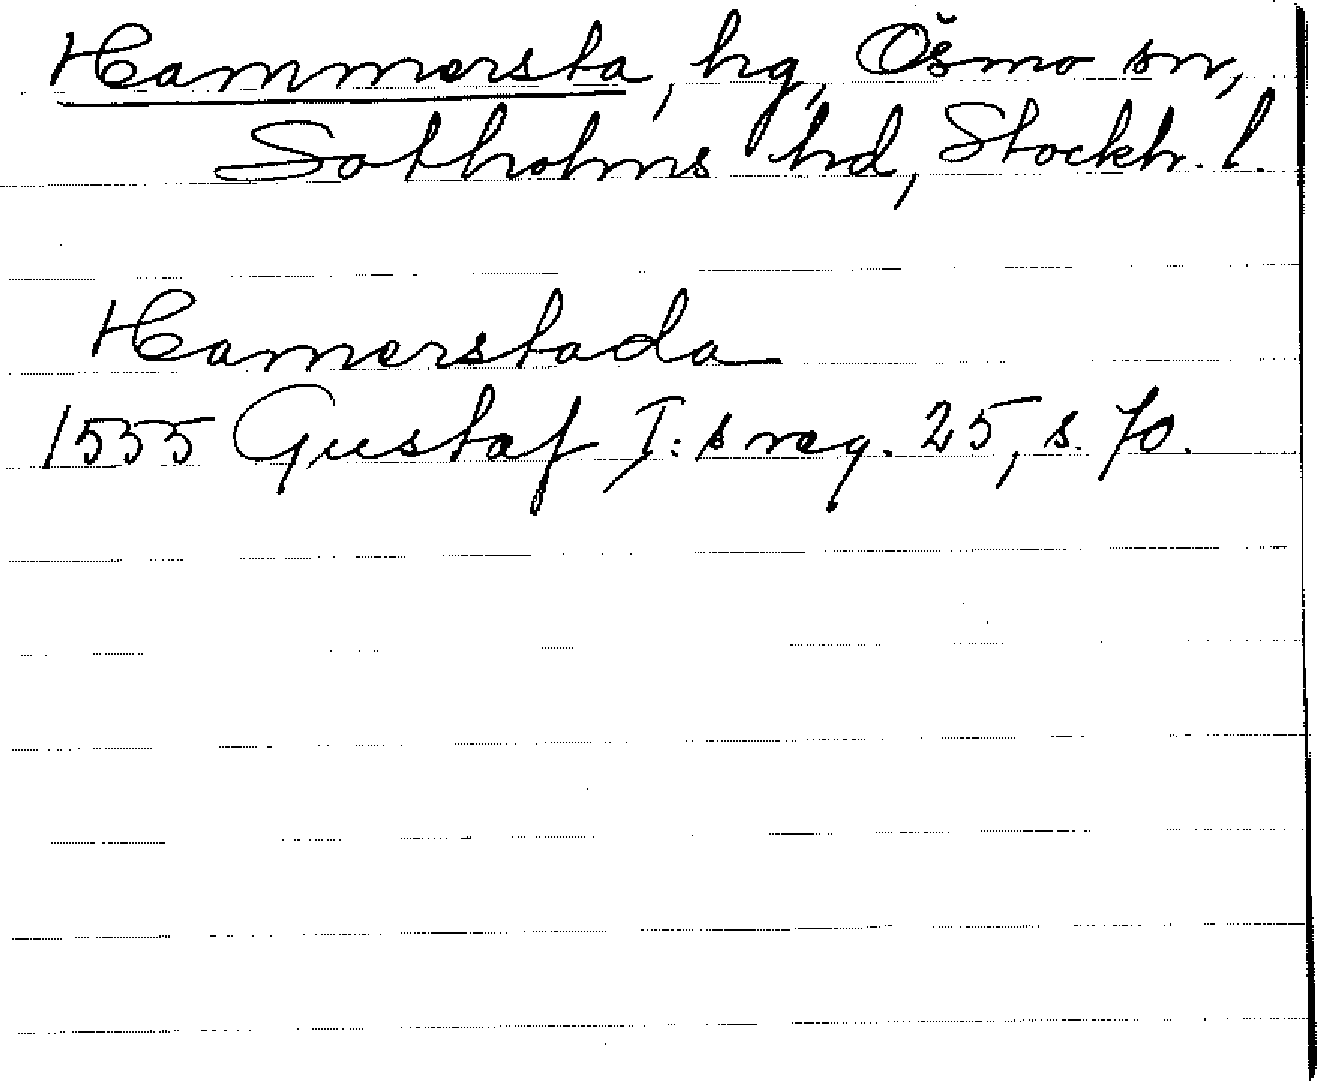 Hammersta, hg, Ösmo sn,
Sotholms hd, Stockh. l.
Hamerstada
1555 Gustaf I:s reg. 25, s. 70.